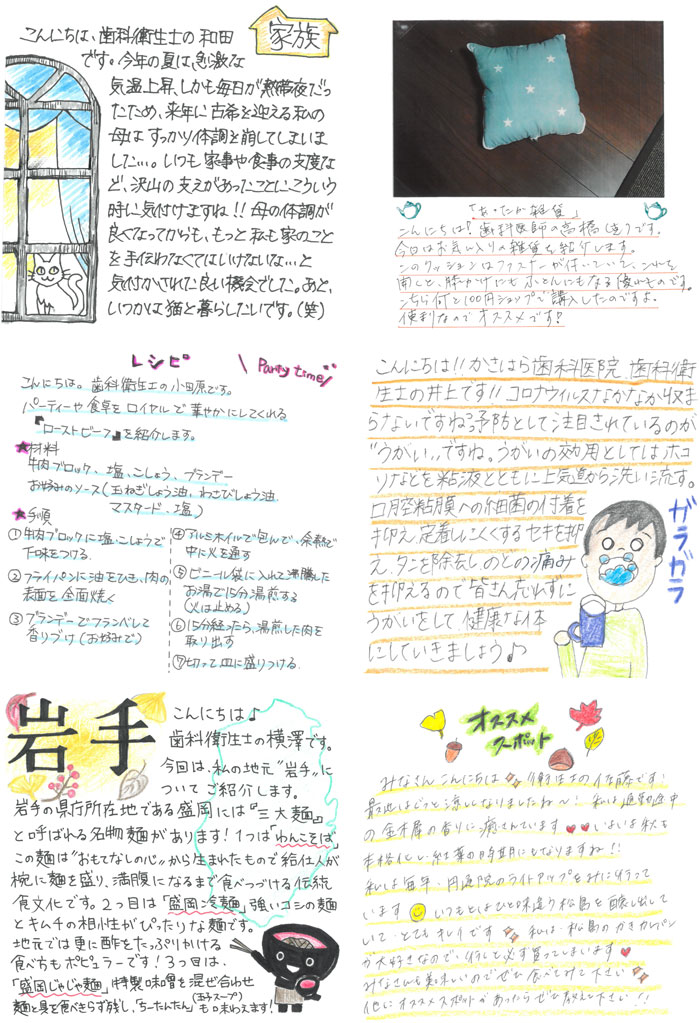 家族
こんにちは、歯科衛生士の和田
です。今年の夏は、急激な
気温上昇、しかも毎日が熱帯夜だっ
たため、来年に古希を迎える私の
母はすっかり体調を崩してしまいま
した…。いつも家事や食事の支度な
ど、沢山の支えがあったことにこういう
時に気付けますね!!母の体調が
良くなってからも、もっと私も家のこと
を手伝わなくてはいけないな…と
気付かされた良い機会でした。あと、
いつかは猫と暮らしたいです。(笑)
「あったか雑貨」
こんにちは!歯科医師の高橋(遼)です。
今日はお気に入りの雑貨を紹介します。
このクッションはファスナーが付いていて、これを
開くと、膝かけにもふとんにもなる優れものです。
こちら何と100円ショップで購入したのですよ。
便利なのでオススメです!
レシピ
\ Party time /
こんにちは。歯科衛生士の小田原です。
パーティーや食卓をロイヤルで華やかにしてくれる
『ローストビーフ』を紹介します。
★材料
牛肉ブロック、塩、こしょう、ブランデー
お好みのソース(玉ねぎしょう油、わさびしょう油
マスタード、塩)
★手順
①牛肉ブロックに塩、こしょうで
下味をつける
②フライパンに油をひき、肉の
表面を全面焼く
③ブランデーでフランベして
香りづけ(お好みで)
④アルミホイルで包んで、余熱で
中に火を通す
⑤ビニール袋に入れて沸騰した
お湯で15分湯煎する
(火は止める)
⑥15分経ったら、湯煎した肉を
取り出す
⑦切って皿に盛りつける
こんにちは!!かさはら歯科医院、歯科衛
生士の井上です!!コロナウイルスなかなか収ま
らないですね。予防として注目されているのが
“うがい”ですね。うがいの効用としてはホコ
リなどを粘液とともに上気道から洗い流す。
口腔粘膜への細菌の付着を
抑え定着しにくくするセキを抑
え、タンを除去し、のどの痛み
を抑えるので皆さん忘れずに
うがいをして、健康な体
にしていきましょう♪
ガラガラ
岩手
こんにちは♪
歯科衛生士の横澤です。
今回は、私の地元“岩手”に
ついてご紹介します。
岩手の県庁所在地である盛岡には『三大麺』
と呼ばれる名物麺があります!1つは「わんこそば」
この麺は“おもてなしの心”から生まれたもので給仕人が
椀に麺を盛り、満腹になるまで食べつづける伝統
食文化です。2つ目は「盛岡冷麺」強いコシの麺
とキムチの相性がぴったりな麺です。
地元では更に酢をたっぷりかける
食べ方もポピュラーです!3つ目は、
「盛岡じゃじゃ麺」特製味噌を混ぜ合わせ
麺と具を食べきらず残し、「ちーたんたん」も味わえます!
(玉子スープ)
オススメ
スーポット
みなさんこんにちは 衛生士の佐藤です!
最近はぐっと涼しくなりましたね〜!私は通勤途中
の金木犀の香りに癒されています いよいよ秋も
本格化し、紅葉の時期にもなりますね!!
私は毎年、円通院のライトアップをみに行って
います いつもとはひと味違う松島を醸し出して
いて、とてもキレイです 私は、松島のかきカレーパン
が大好きなので、行くと必ず買ってしまいます
みなさんも美味しいのでぜひ食べてみて下さい
他にオススメスポットがあったらぜひ教えて下さい!!